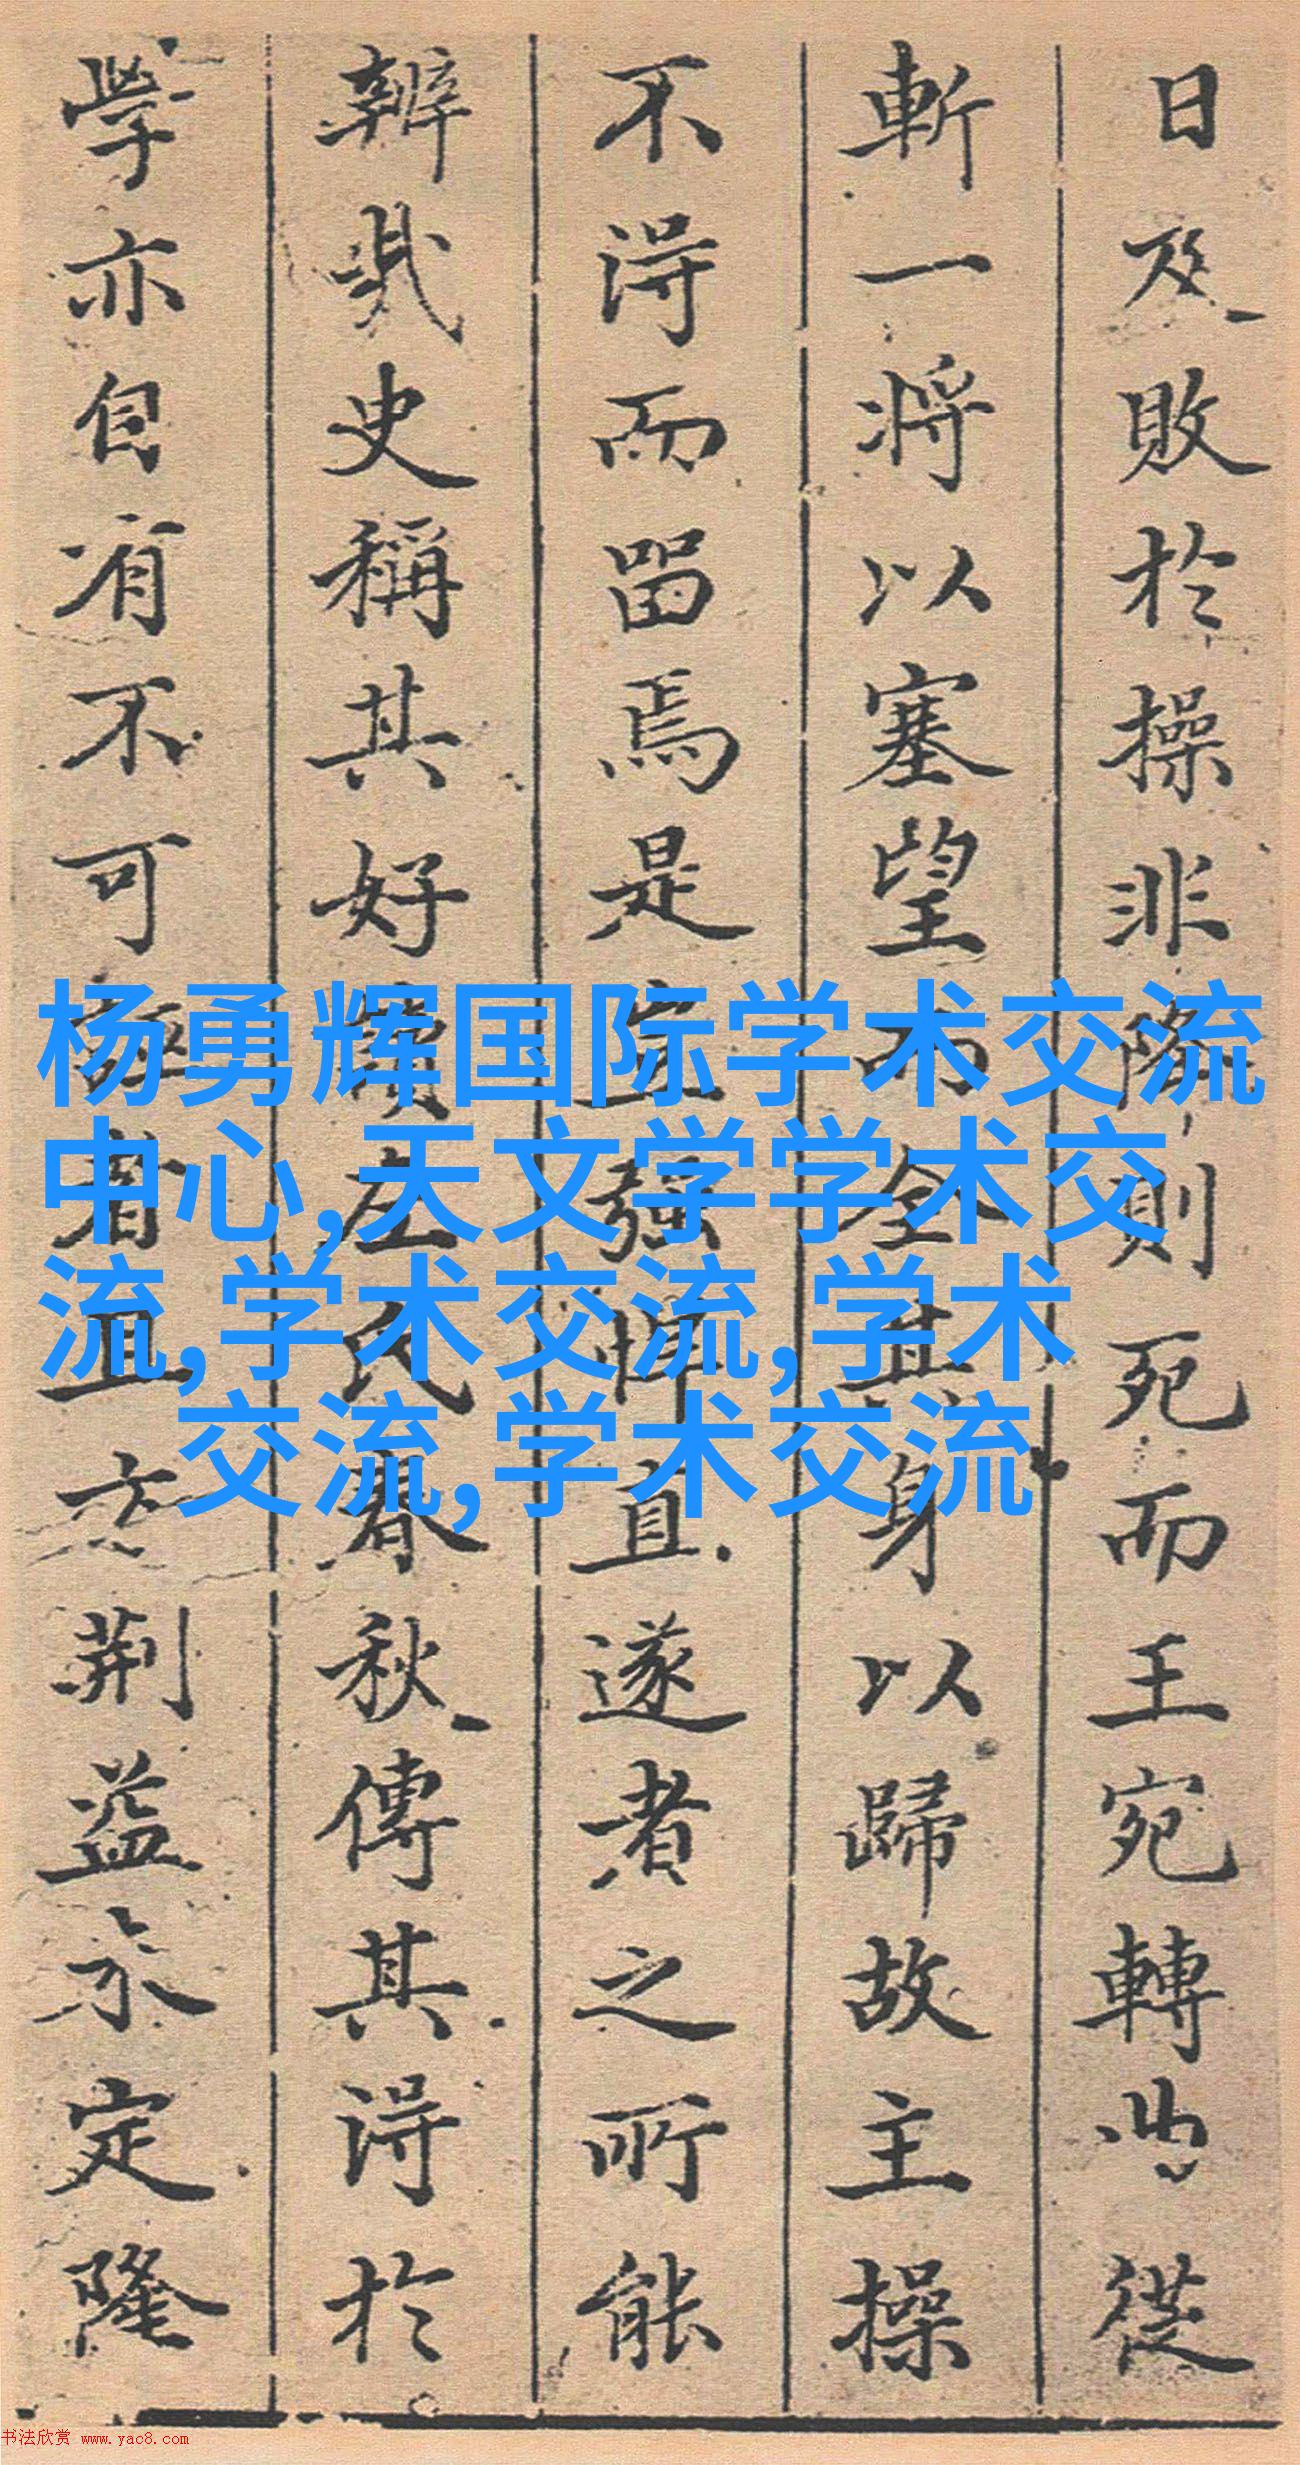 日及敗於操非降則死而王宛轉曲從
斬一將以塞望而全其身以歸故主操
不得而留焉是豈強悍直遂者之所能
辨哉史稱其好讀左氏春秋傳其得於
學亦自有不可誣者且方荊益未定隆
杨勇辉国际学术交流
中心,天文学学术交
流,学术交流,学术
交流,学术交流
书法欣赏 www.yac8.com